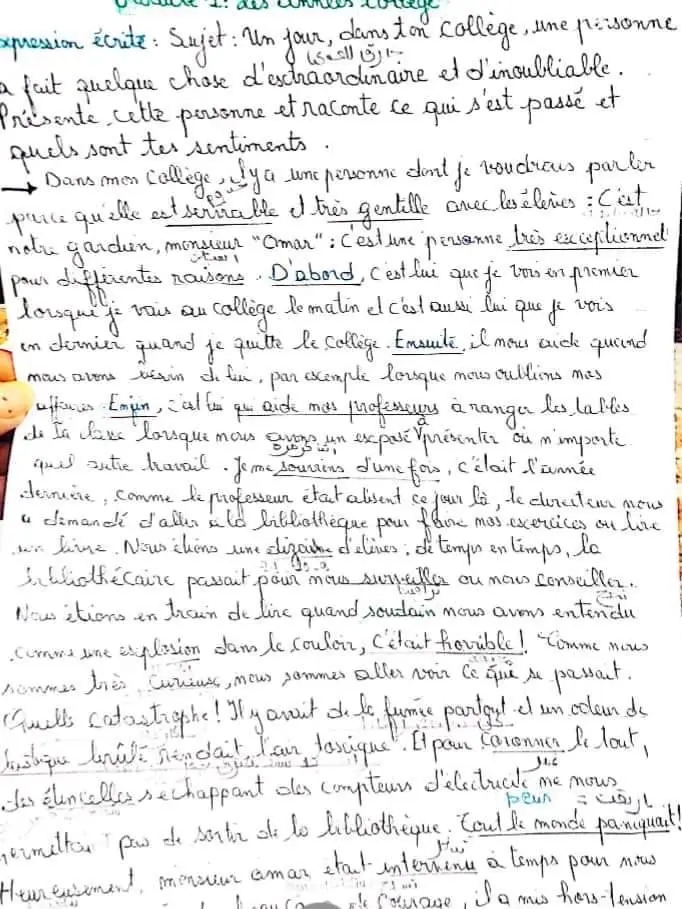 Module 1: des années collège
Expression écrite: Sujet: Un jour, dans ton collège, une personne
a fait quelque chose d'esctraordinaire et d'inoubliable.
Présente cette personne et raconte ce qui s'est passé et
quels sont tes sentiments.
→ Dans mon collège, il y a une personne dont je voudrais parler
parce qu'elle est serviable et très gentille avec les élèves: C'est
notre gardien, monsieur "Omar"; C'est une personne très exceptionnel
pour différentes raisons. D'abord, c'est lui que je vois en premier
lorsque je vais au collège le matin et c'est aussi lui que je vois
en dernier quand je quitte le collège. Ensuite, il nous aide quand
nous avons besoin de lui, par exemple lorsque nous oublions nos
affaires. Enfin, c'est lui qui aide nos professeurs à ranger les tables
de la classe lorsque nous avons un exposé à présenter ou n'importe
quel autre travail. Je me souviens d'une fois, c'était l'année
dernière, comme le professeur était absent ce jour là, le directeur nous
a demandé d'aller à la bibliothèque pour faire nos exercices ou lire
un livre. Nous étions une dizaine d'élèves; de temps en temps, la
bibliothécaire passait pour nous surveiller ou nous conseiller.
Nous étions en train de lire quand soudain nous avons entendu
comme une explosion dans le couloir, c'était horrible! Comme nous
sommes très curieuse, nous sommes aller voir ce qui se passait.
Quelle catastrophe! Il y avait de la fumée partout et un odeur de
brûlé rendait l'air toxique". Et pour couronner le tout,
des étincelles s'échappant des compteurs d'électricité ne nous
peur =
permettait pas de sortir de la bibliothèque. Tout le monde paniquait!
Heureusement, monsieur amar etait intervenu à temps pour nous
de courage, il a mis hors-tension